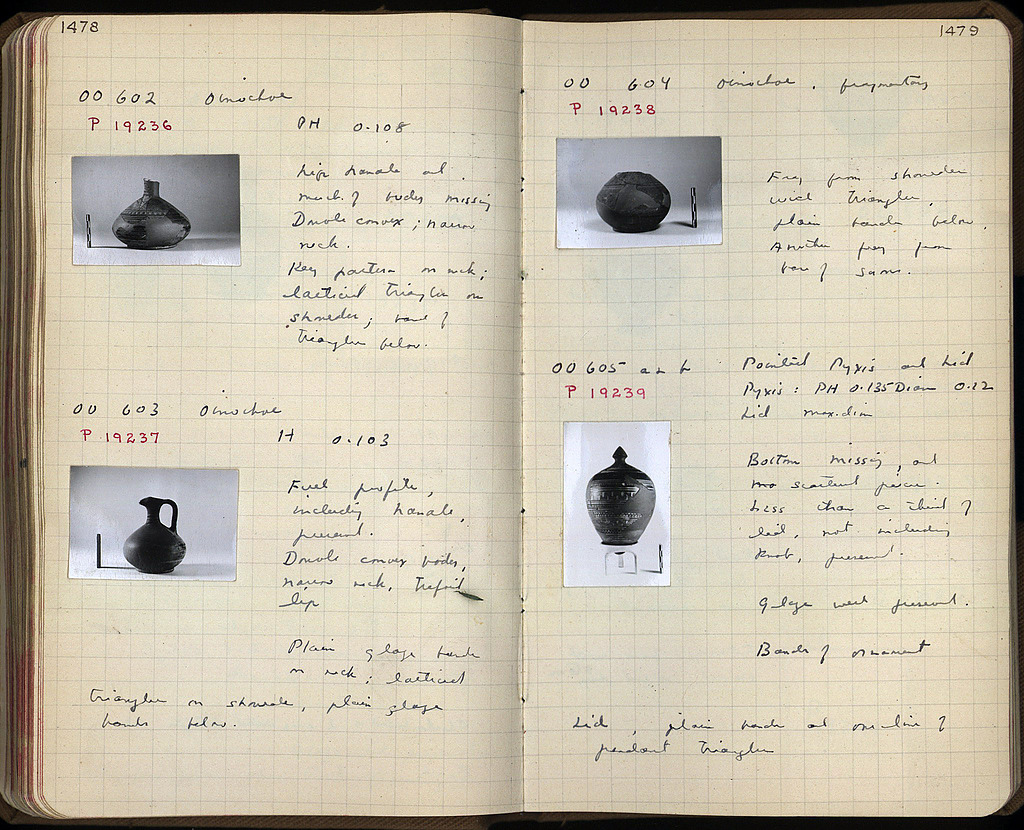 1478
OO 602 Oinochoe
P 19236
PH 0.108
Lip, handle and
much of body missing
Double convex; narrow
neck.
Key pattern on neck;
latticed triangles on
shoulder; band of
triangles below.
OO 603 Oinochoe
P 19237
H 0.103
Full profile,
including handle,
preserved.
Double convex body,
narrow neck, trefoil
lip
Plain glaze bands
on neck; latticed
triangles on shoulder, plain glaze
bands below.
1479
OO 604 Oinochoe, fragmentary
P 19238
Frag from shoulder
with triangles,
plain bands below.
Another frag from
base of same.
OO 605 a & b Pointed Pyxis and Lid
P 19239
Pyxis: PH 0.135 Diam 0.12
Lid max. dim
Bottom missing, and
scattered pieces.
Less than a third of
lid, not including
knob, preserved.
Glaze well preserved.
Bands of ornament
Lid, plain bands and one line of
pendant triangles